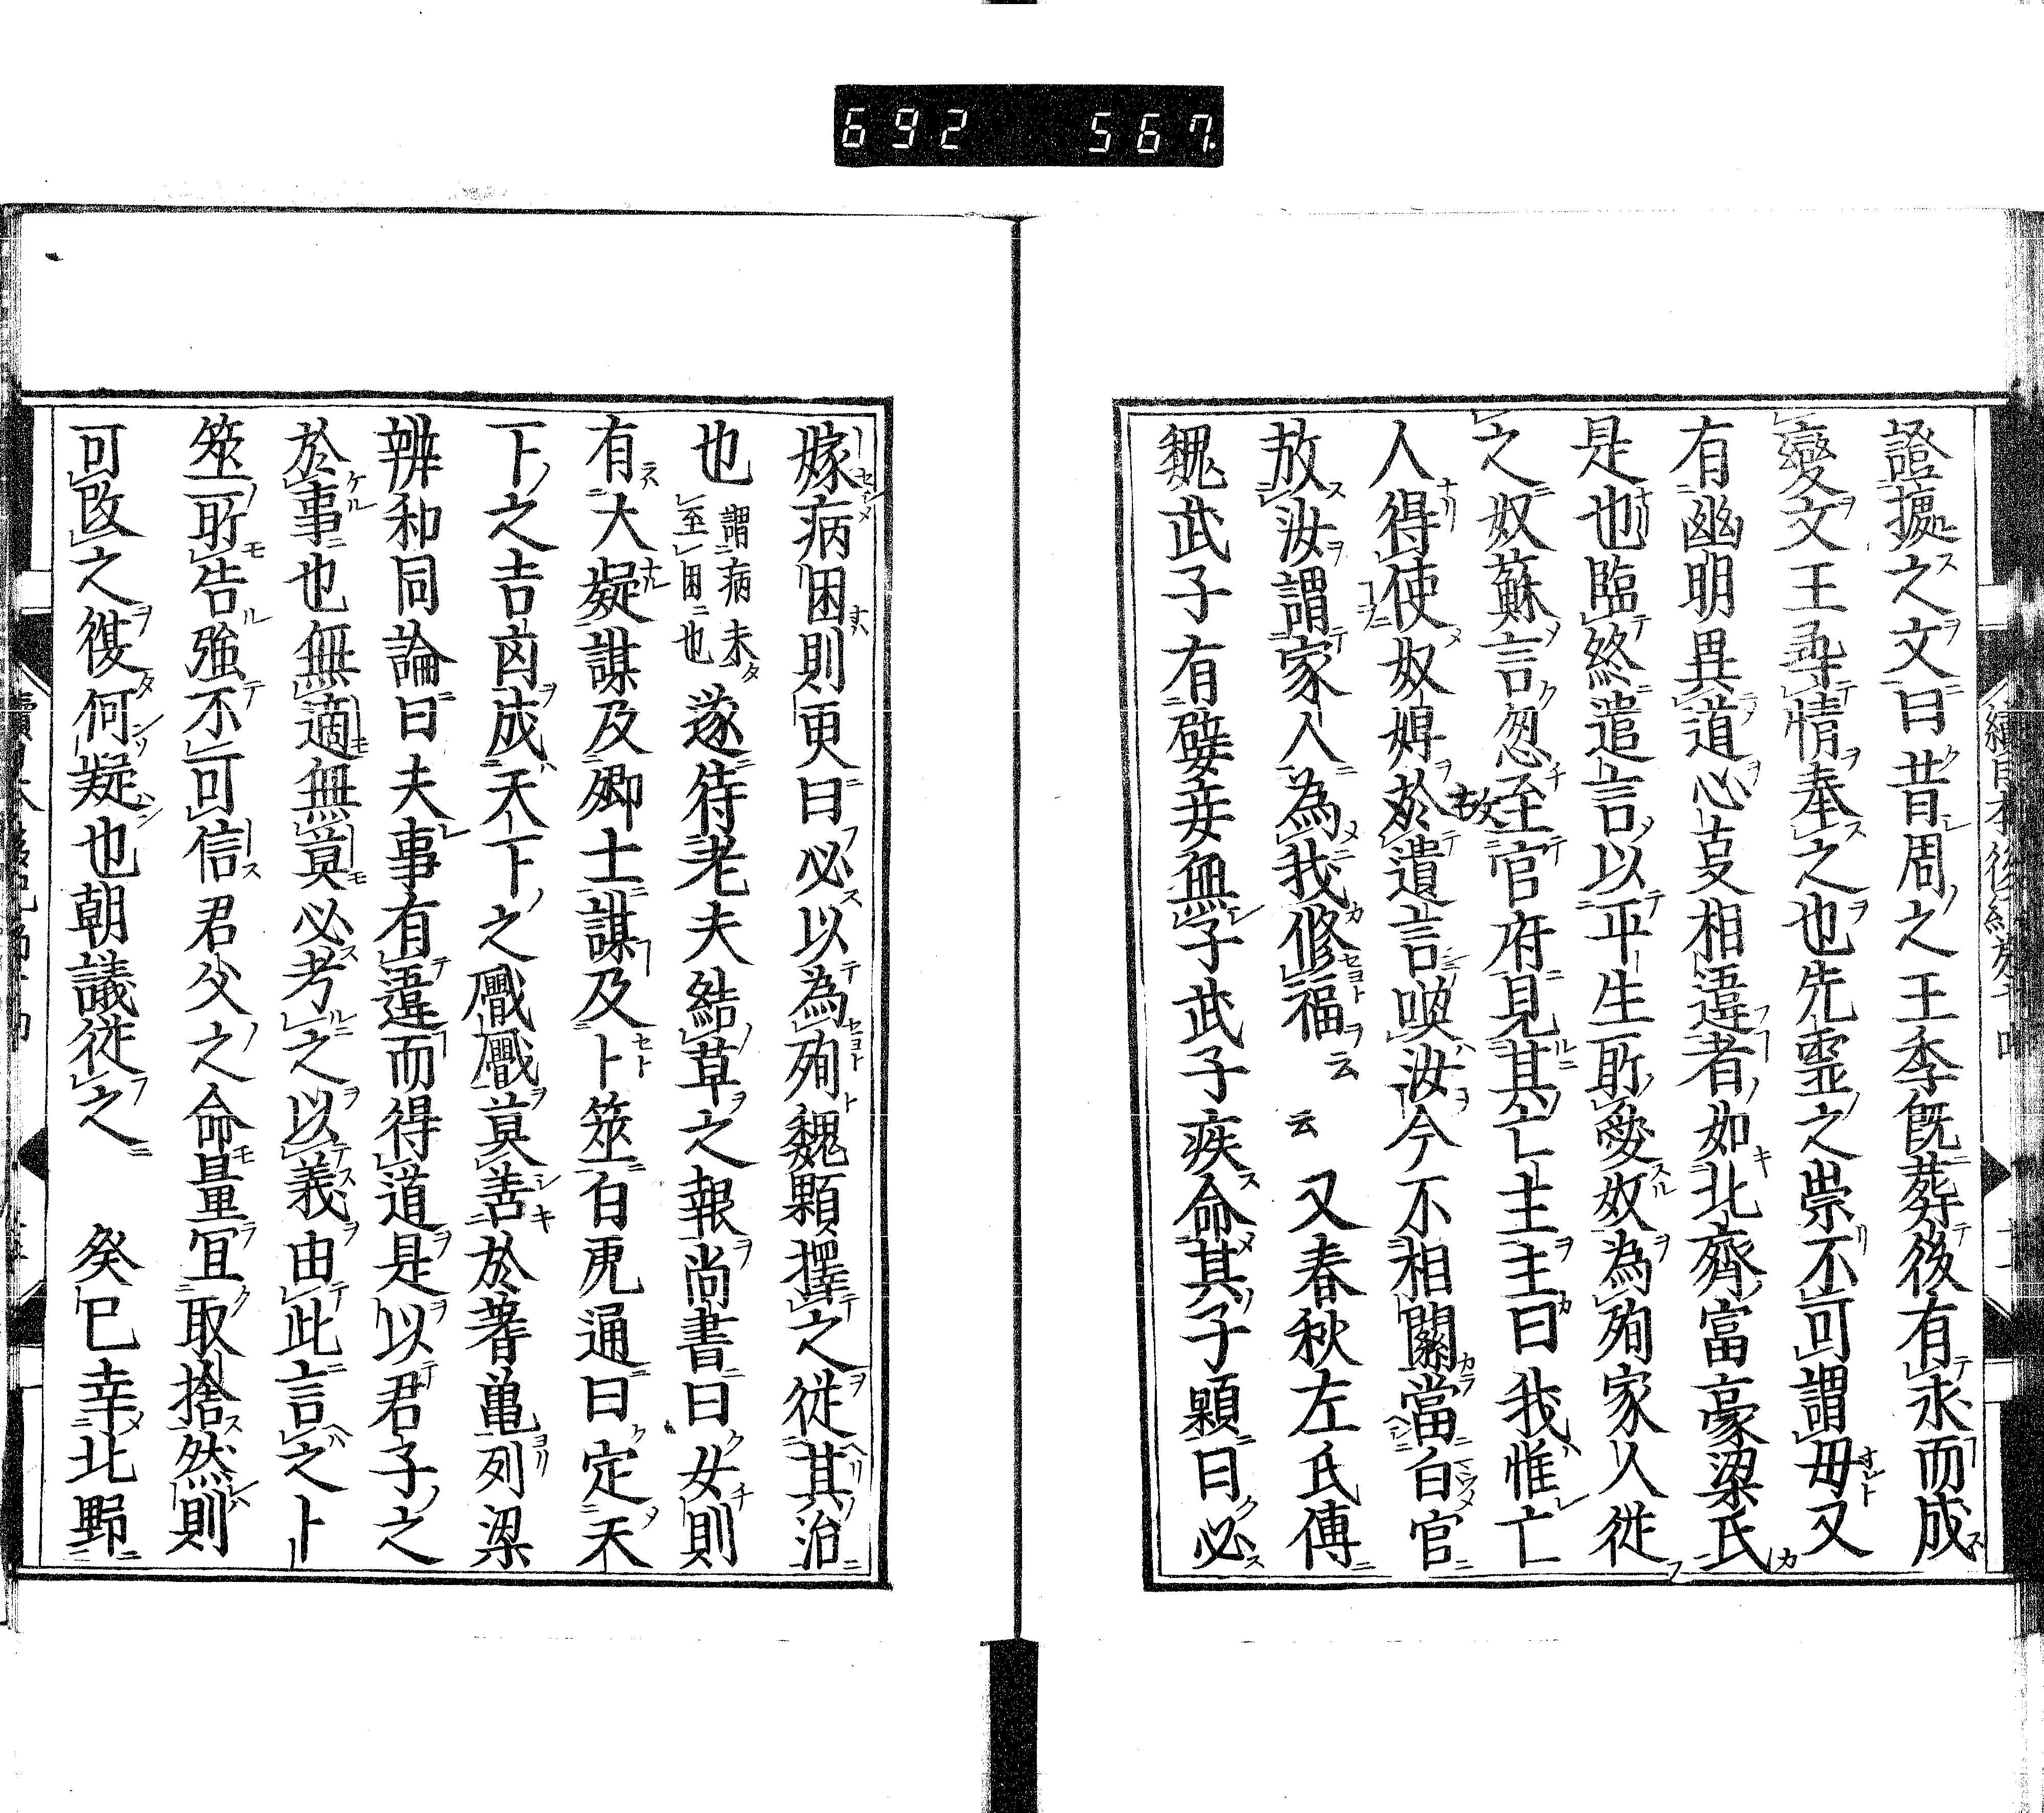 692 567
證據之文曰昔周之王季既葬後有求而成
變文王尋情奉之也先霊之祟不可謂毋又
有幽明異道心事相違者如北齊富豪梁氏
是也臨終遣言以平生所愛奴為殉家人従
之奴蘇言忽至官府見其亡主主曰我惟亡
人得使奴婢故於遺言喚汝今不相關當白官
放汝謂家人為我修福云云又春秋左氏傳
魏武子有嬖妾無子武子疾命其子顆曰必
嫁病困則更曰必以為殉魏顆擇之從其治
也謂病未至困也遂待老夫結草之報尚書曰女則
有大疑謀及卿士謀及卜筮白虎通曰定天
下之吉凶成天下之亹亹莫善於蓍龜列梁
辨和同論曰夫事有違而得道是以君子之
於事也無適無莫必考之以義由此言之卜
筮所告強不可信君父之命量宜取捨然則
可改之復何疑也朝議從之 癸巳幸北野